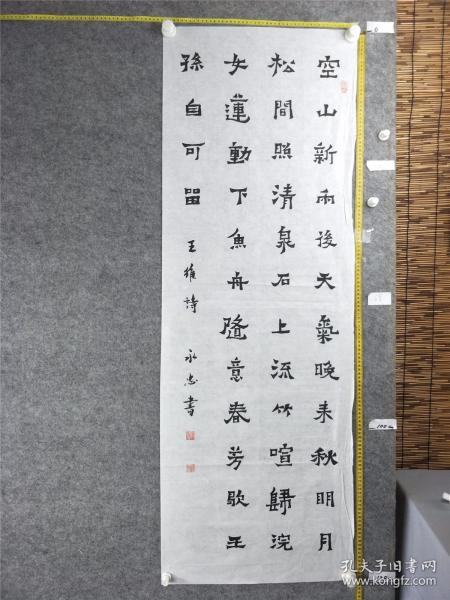 空山新雨後天氣晚来秋明月
松間照清泉石上流竹喧歸浣
女蓮動下魚舟隨意春芳歇王
孫自可留 王維詩 永忠書
孔夫子旧书网
www.kongfz.com